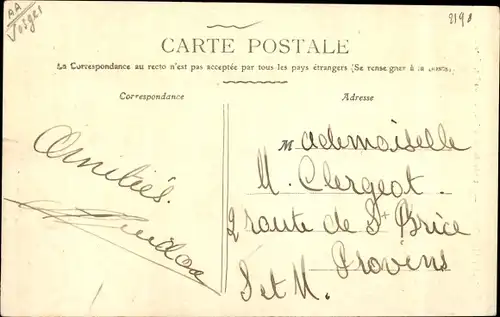 AA
Vosges
2191
CARTE POSTALE
La Correspondance au recto n'est pas acceptée par tous les pays étrangers (Se renseigner à la Poste)
Correspondance
Adresse
Amitiés.
Mademoiselle
M. Clergeot.
2 route de St Brice
Provins
S et M.